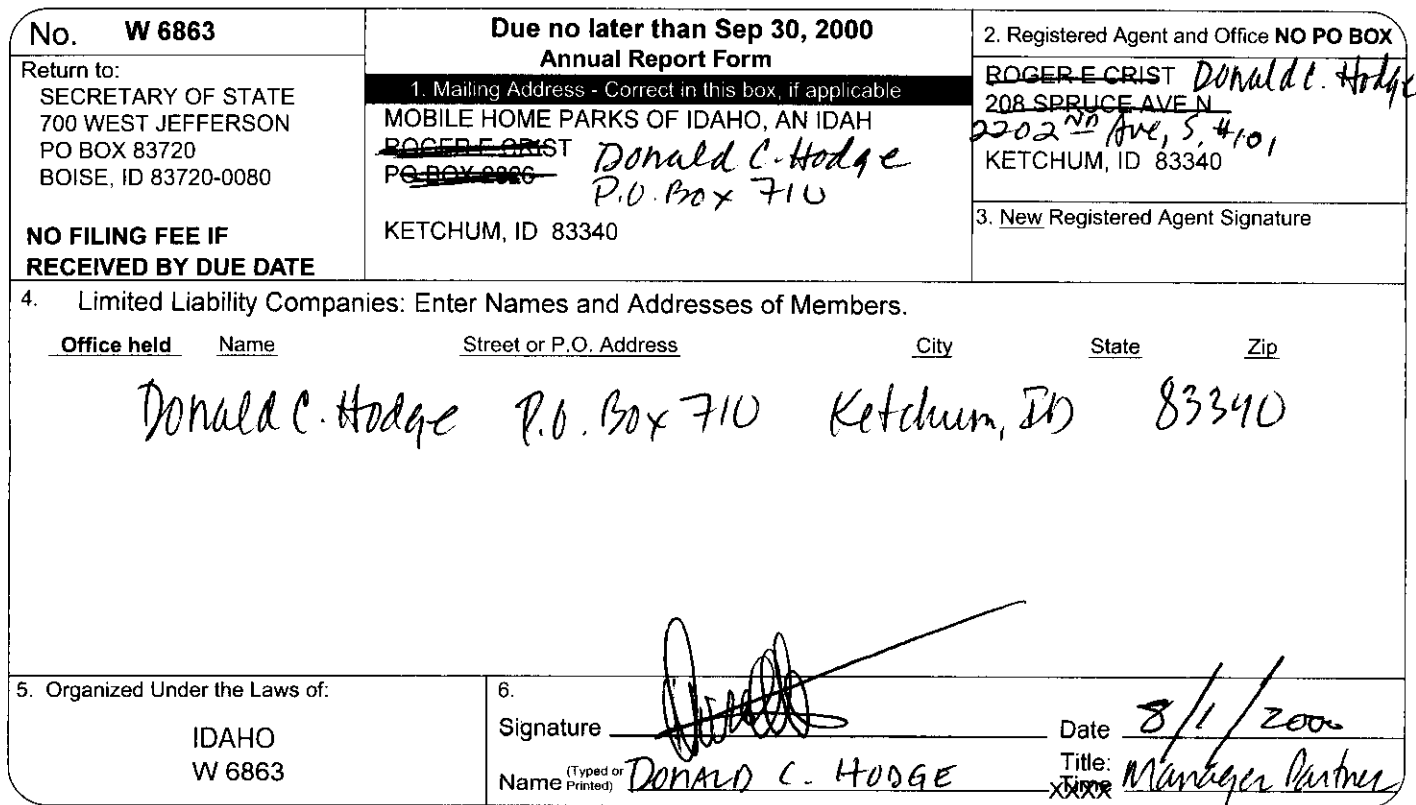 No. W 6863
Return to:
SECRETARY OF STATE
700 WEST JEFFERSON
PO BOX 83720
BOISE, ID 83720-0080
NO FILING FEE IF
RECEIVED BY DUE DATE
Due no later than Sep 30, 2000
Annual Report Form
1. Mailing Address - Correct in this box, if applicable
MOBILE HOME PARKS OF IDAHO, AN IDAH
ROGER E CRIST Donald C. Hodge
PO BOX P.O. Box 710
KETCHUM, ID 83340
2. Registered Agent and Office NO PO BOX
ROGER E CRIST Donald C. Hodge
208 SPRUCE AVE N
220 2ND Ave, S, #101
KETCHUM, ID 83340
3. New Registered Agent Signature
4. Limited Liability Companies: Enter Names and Addresses of Members.
Office held Name Street or P.O. Address City State Zip
Donald C. Hodge P.O. Box 710 Ketchum, ID 83340
5. Organized Under the Laws of:
IDAHO
W 6863
6.
Signature Date 8/1/2000
Name (Typed or Printed) DONALD C. HODGE Title: Manager Partner